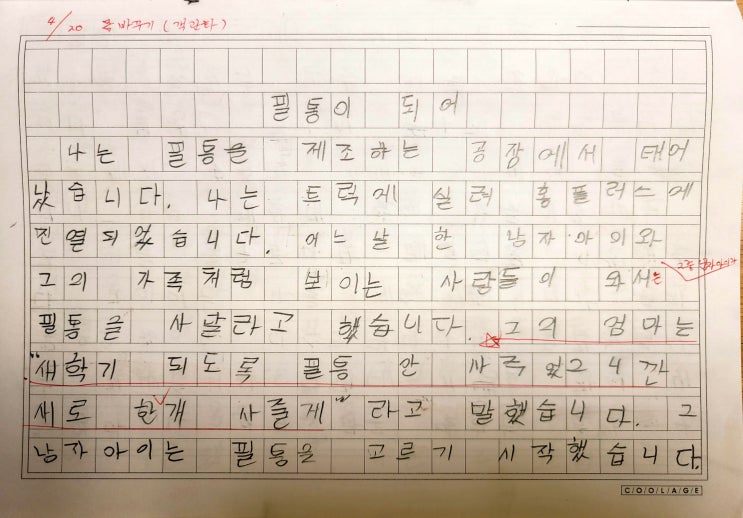 4/20 글바꾸기(객관화)
필통이 되어
나는 필통을 제조하는 공장에서 태어
났습니다. 나는 트럭에 실려 홈플러스에
진열되었습니다. 어느날 한 남자아이와
그의 가족처럼 보이는 사람들이 와서는
필통을 사달라고 했습니다. 그의 엄마는
"새학기 되도록 필통 안 사주었으니깐
새로 한개 사줄게"라고 말했습니다. 그
남자아이는 필통을 고르기 시작했습니다.
COOLAGE